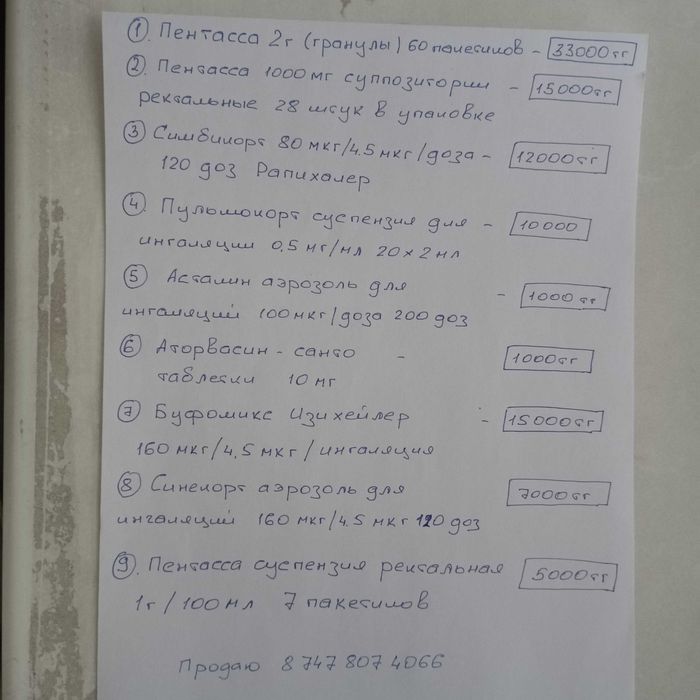 1. Пентасса 2г (гранулы) 60 пакетиков - 33000тг
2. Пентасса 1000мг суппозитории - 15000тг
ректальные 28 штук в упаковке
3 Симбикорт 80 мкг/4.5мкг/доза - 12000тг
120 доз Рапихалер
4. Пульмокорт суспензия для - 10000
ингаляции 0,5 мг/мл 20×2мл
5 Асталин аэрозоль для - 1000тг
ингаляций 100мкг/доза 200 доз
6 Аторвасин-санто - 1000тг
таблетки 10 мг
7 Буфомикс Изихейлер - 15000тг
160 мкг/4,5 мкг/ингаляция
8 Синекорт аэрозоль для 7000тг
ингаляций 160 мкг/4.5 мкг 120 доз
9. Пентасса суспензия ректальная 5000тг
1г/100мл 7 пакетиков
Продаю 8 747 807 4066